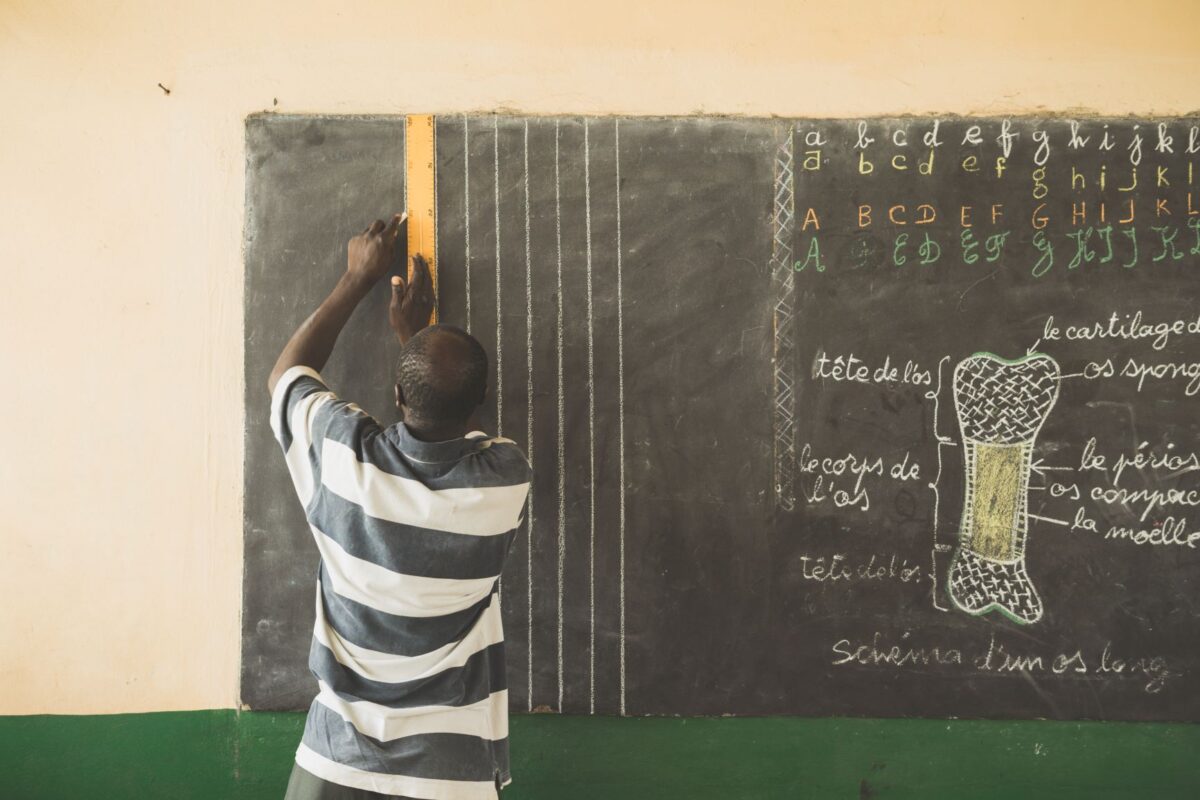 a b c d e f g h i j k l
a b c d e f g h i j k l
A B C D E F G H I J K L
A B C D E F G H I J K L
le cartilage d
tête de l'os
os spong
le corps de
l'os
le périos
os compac
la moëlle
tête de l'os
Schéma d'un os long